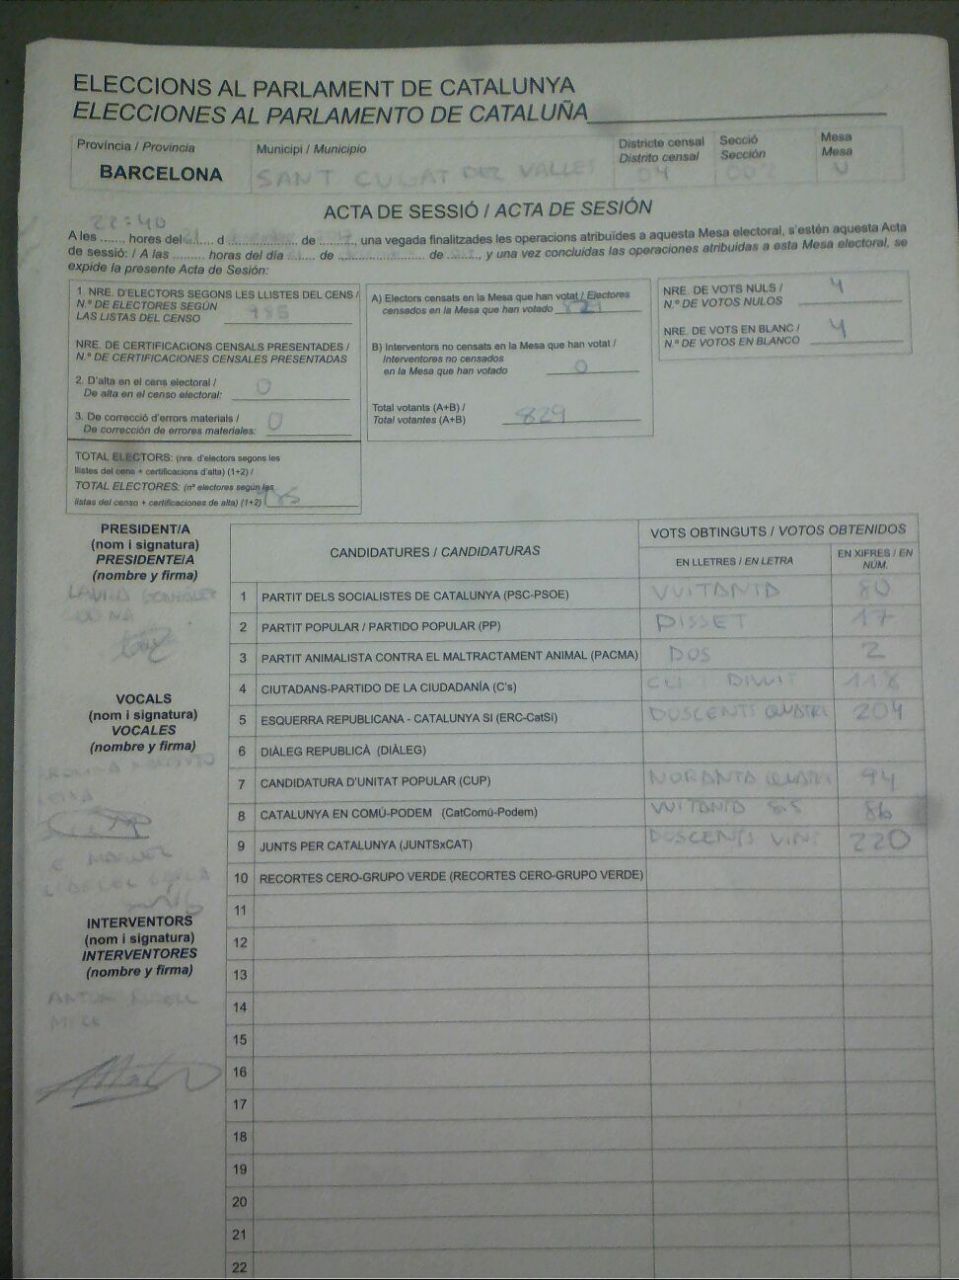 ELECCIONS AL PARLAMENT DE CATALUNYA
ELECCIONES AL PARLAMENTO DE CATALUÑA
Província / Provincia
BARCELONA
Municipi / Municipio
SANT CUGAT DEL VALLES
Districte censal
Distrito censal
04
Secció
Sección
002
Mesa
Mesa
U
ACTA DE SESSIÓ / ACTA DE SESIÓN
22:40
A les ....... hores del ....... d ................. de ........, una vegada finalitzades les operacions atribuïdes a aquesta Mesa electoral, s'estén aquesta Acta
de sessió: / A las ......... horas del día ....... de ................. de ........, y una vez concluidas las operaciones atribuidas a esta Mesa electoral, se
expide la presente Acta de Sesión:
1. NRE. D'ELECTORS SEGONS LES LLISTES DEL CENS /
N.º DE ELECTORES SEGÚN
LAS LISTAS DEL CENSO
985
NRE. DE CERTIFICACIONS CENSALS PRESENTADES /
N.º DE CERTIFICACIONES CENSALES PRESENTADAS
2. D'alta en el cens electoral /
De alta en el censo electoral: 0
3. De correcció d'errors materials /
De corrección de errores materiales: 0
TOTAL ELECTORS: (nre. d'electors segons les
llistes del cens + certificacions d'alta) (1+2) /
TOTAL ELECTORES: (nº electores según las
listas del censo + certificaciones de alta) (1+2) 985
A) Electors censats en la Mesa que han votat / Electores
censados en la Mesa que han votado 829
B) Interventors no censats en la Mesa que han votat /
Interventores no censados
en la Mesa que han votado 0
Total votants (A+B) /
Total votantes (A+B) 829
NRE. DE VOTS NULS /
N.º DE VOTOS NULOS 4
NRE. DE VOTS EN BLANC /
N.º DE VOTOS EN BLANCO 4
PRESIDENT/A
(nom i signatura)
PRESIDENTE/A
(nombre y firma)
LAURA GONZÁLEZ
VOCALS
(nom i signatura)
VOCALES
(nombre y firma)
INTERVENTORS
(nom i signatura)
INTERVENTORES
(nombre y firma)
CANDIDATURES / CANDIDATURAS
VOTS OBTINGUTS / VOTOS OBTENIDOS
EN LLETRES / EN LETRA
EN XIFRES / EN
NÚM.
1 PARTIT DELS SOCIALISTES DE CATALUNYA (PSC-PSOE) VUITANTA 80
2 PARTIT POPULAR / PARTIDO POPULAR (PP) DISSET 17
3 PARTIT ANIMALISTA CONTRA EL MALTRACTAMENT ANIMAL (PACMA) DOS 2
4 CIUTADANS-PARTIDO DE LA CIUDADANÍA (C's) DIVUIT 118
5 ESQUERRA REPUBLICANA - CATALUNYA SI (ERC-CatSí) DUSCENTS QUATRE 204
6 DIÀLEG REPUBLICÀ (DIÀLEG)
7 CANDIDATURA D'UNITAT POPULAR (CUP) NORANTA QUATRE 94
8 CATALUNYA EN COMÚ-PODEM (CatComú-Podem) VUITANTA SIS 86
9 JUNTS PER CATALUNYA (JUNTSxCAT) DUSCENTS VINT 220
10 RECORTES CERO-GRUPO VERDE (RECORTES CERO-GRUPO VERDE)
11
12
13
14
15
16
17
18
19
20
21
22